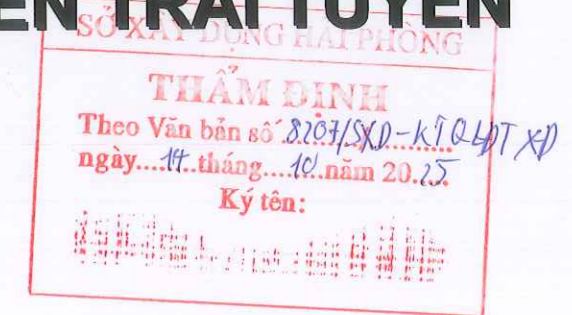 ÊN TRÁI TUYẾN
SỞ XÂY DỰNG HẢI PHÒNG
THẨM ĐỊNH
Theo Văn bản số 8207/SXD-KTQLĐTXD
ngày....14..tháng....10..năm 20.25
Ký tên: